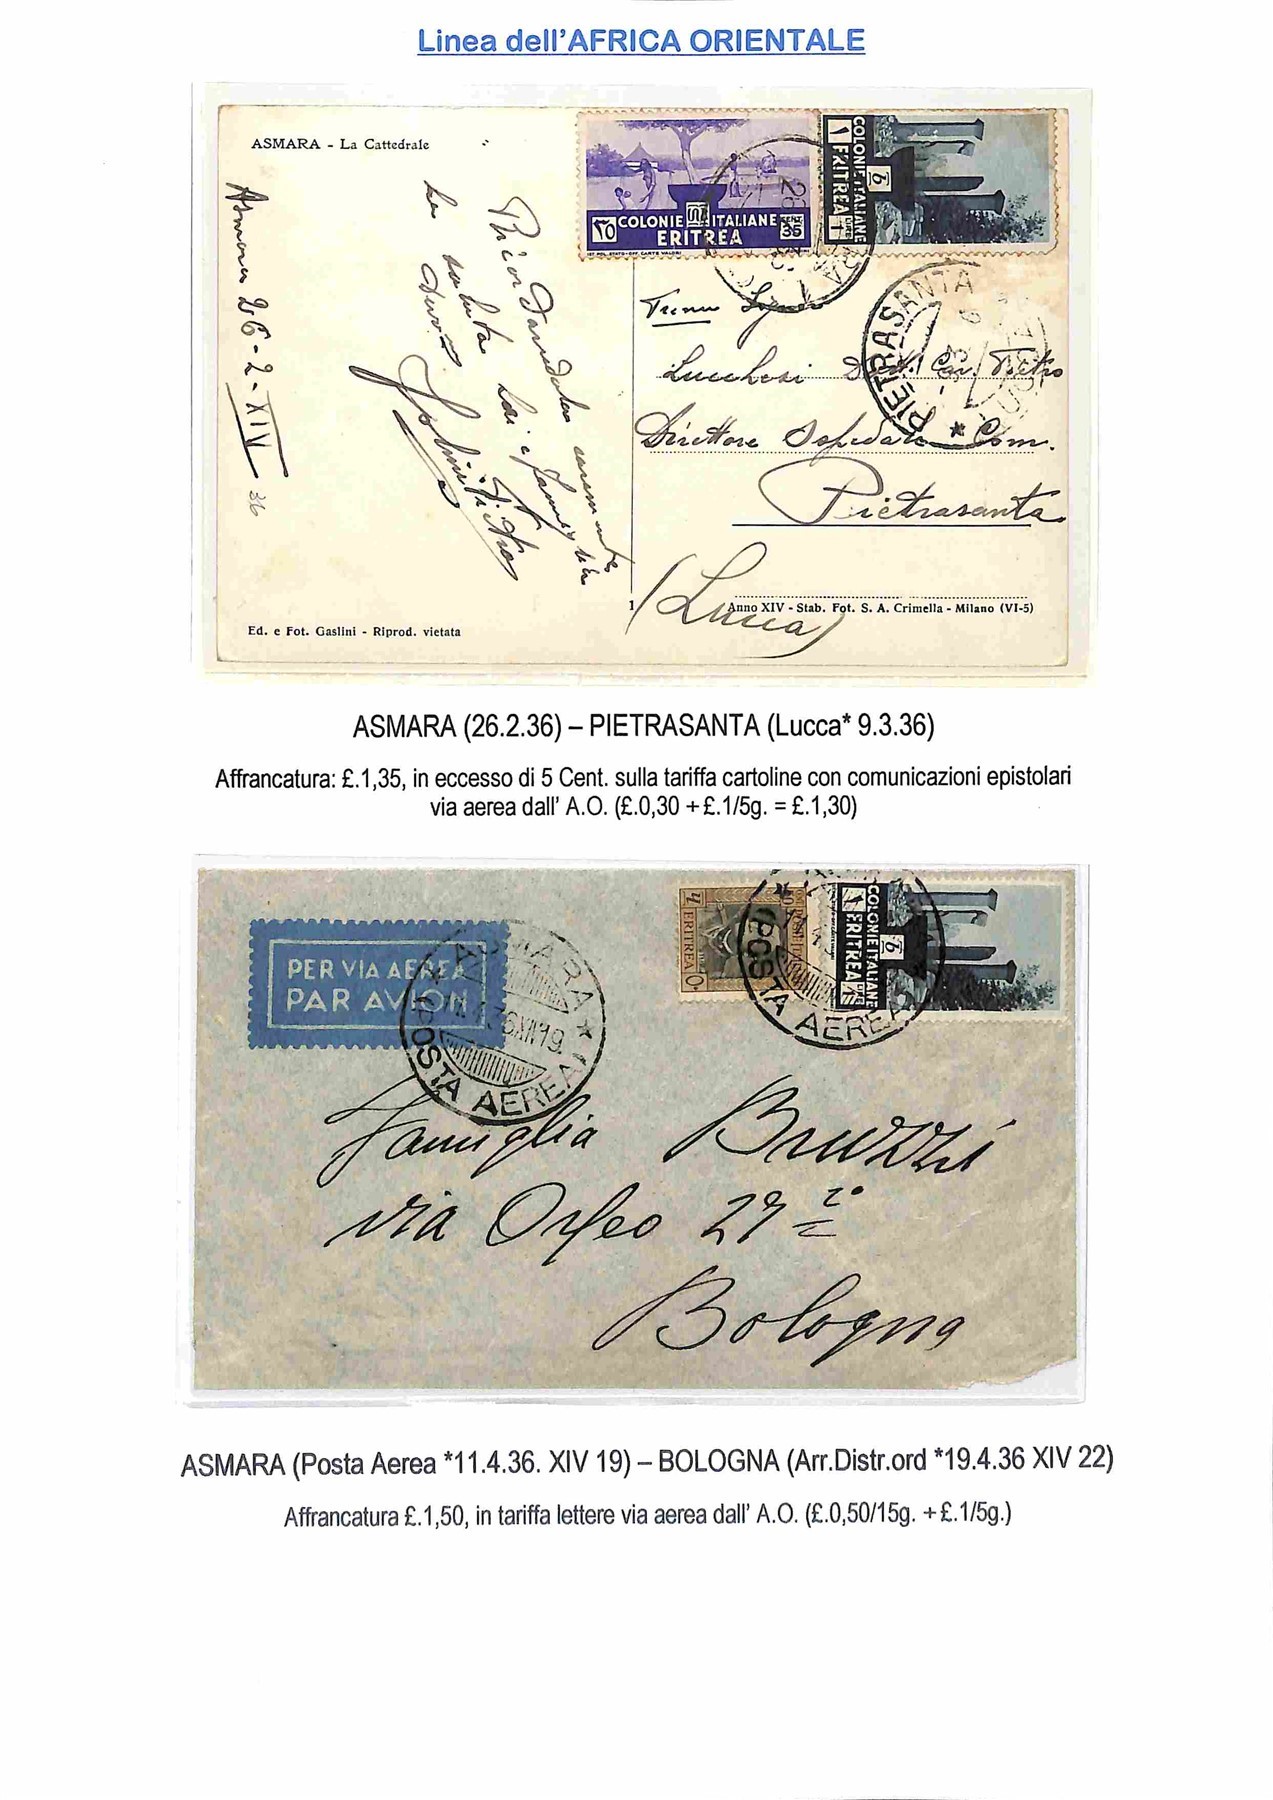 Linea dell'AFRICA ORIENTALE
ASMARA - La Cattedrale
Asmara 26-2-XIV
36
Ricordandola
la saluta Lei e famiglia
COLONIE ITALIANE CENT. 35
ERITREA
IST. POL. STATO-OFF. CARTE VALORI
COLONIE ITALIANE
1 ERITREA LIRE 1
PIETRASANTA
Lucchesi Dott. Cav. Pietro
Direttore Ospedale Com.
Pietrasanta
(Lucca)
1
Anno XIV - Stab. Fot. S. A. Crimella - Milano (VI-5)
Ed. e Fot. Gaslini - Riprod. vietata
ASMARA (26.2.36) – PIETRASANTA (Lucca* 9.3.36)
Affrancatura: £.1,35, in eccesso di 5 Cent. sulla tariffa cartoline con comunicazioni epistolari
via aerea dall' A.O. (£.0,30 +£.1/5g. = £.1,30)
PER VIA AEREA
PAR AVION
ASMARA
POSTA AEREA
ERITREA
COLONIE ITALIANE
1 ERITREA LIRE 1
POSTA AEREA
Famiglia Bruzzi
via Orfeo 27 2°
Bologna
ASMARA (Posta Aerea *11.4.36. XIV 19) – BOLOGNA (Arr.Distr.ord *19.4.36 XIV 22)
Affrancatura £.1,50, in tariffa lettere via aerea dall' A.O. (£.0,50/15g. +£.1/5g.)